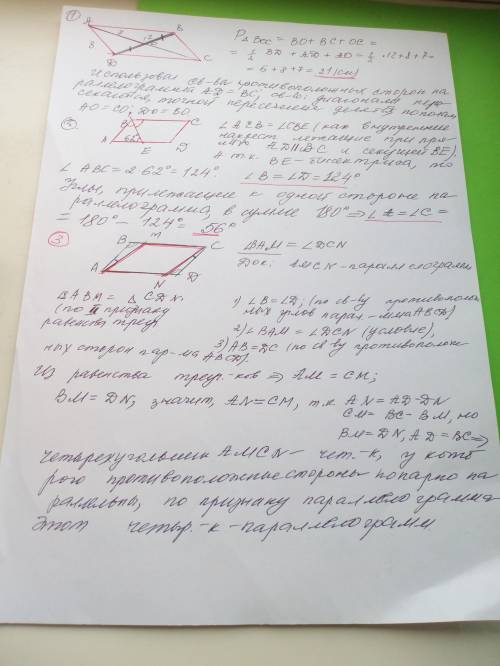 ① A B
8 12
D C
P△BOC = BO + BC + OC =
= 1/2 BD + AD + AO = 1/2 · 12 + 8 + 7 =
= 6 + 8 + 7 = 21 (см)
Используя св-ва противоположных сторон па-
раллелограмма AD = BC; св-во: диагонали пере-
секаются, точкой пересечения делятся пополам
AO = CO; DO = BO.
② B C
62°
A E D
∠AEB = ∠CBE (как внутренние
накрест лежащие при пря-
мых AD || BC и секущей BE).
А т.к. BE - биссектриса, то
∠ABC = 2·62° = 124°
∠B = ∠D = 124°
Углы, прилежащие к одной стороне па-
раллелограмма, в сумме 180° ⇒ ∠A = ∠C =
= 180° - 124° = 56°
③ B M C
A N D
∠BAM = ∠DCN
Док: AMCN - параллелограмм
△ABM = △CDN
(по II признаку
равенства треуг.
1) ∠B = ∠D; (по св-ву противополож
ных углов парал-мма ABCD)
2) ∠BAM = ∠DCN (условие),
3) AB = DC (по св-ву противополож-
ных сторон пар-ма ABCD).
Из равенства треуг.-ков ⇒ AM = CM;
BM = DN; значит, AN = CM, т.к AN = AD - DN
CM = BC - BM, но
BM = DN, AD = BC ⇒
четырехугольник AMCN - чет.-к, у кото
рого противоположные стороны попарно па
раллельны, по признаку параллелограмма
этот четыр.-к - параллелограмм